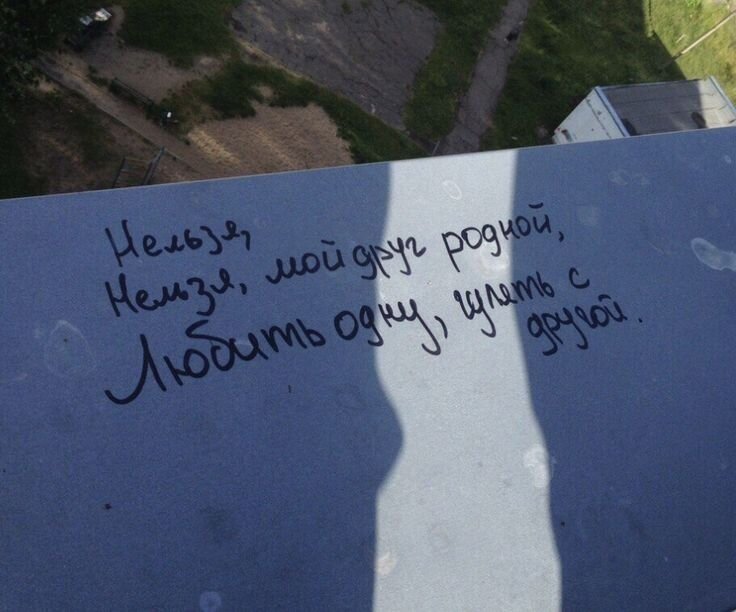 Нельзя,
Нельзя, мой друг родной,
Любить одну, гулять с
другой.